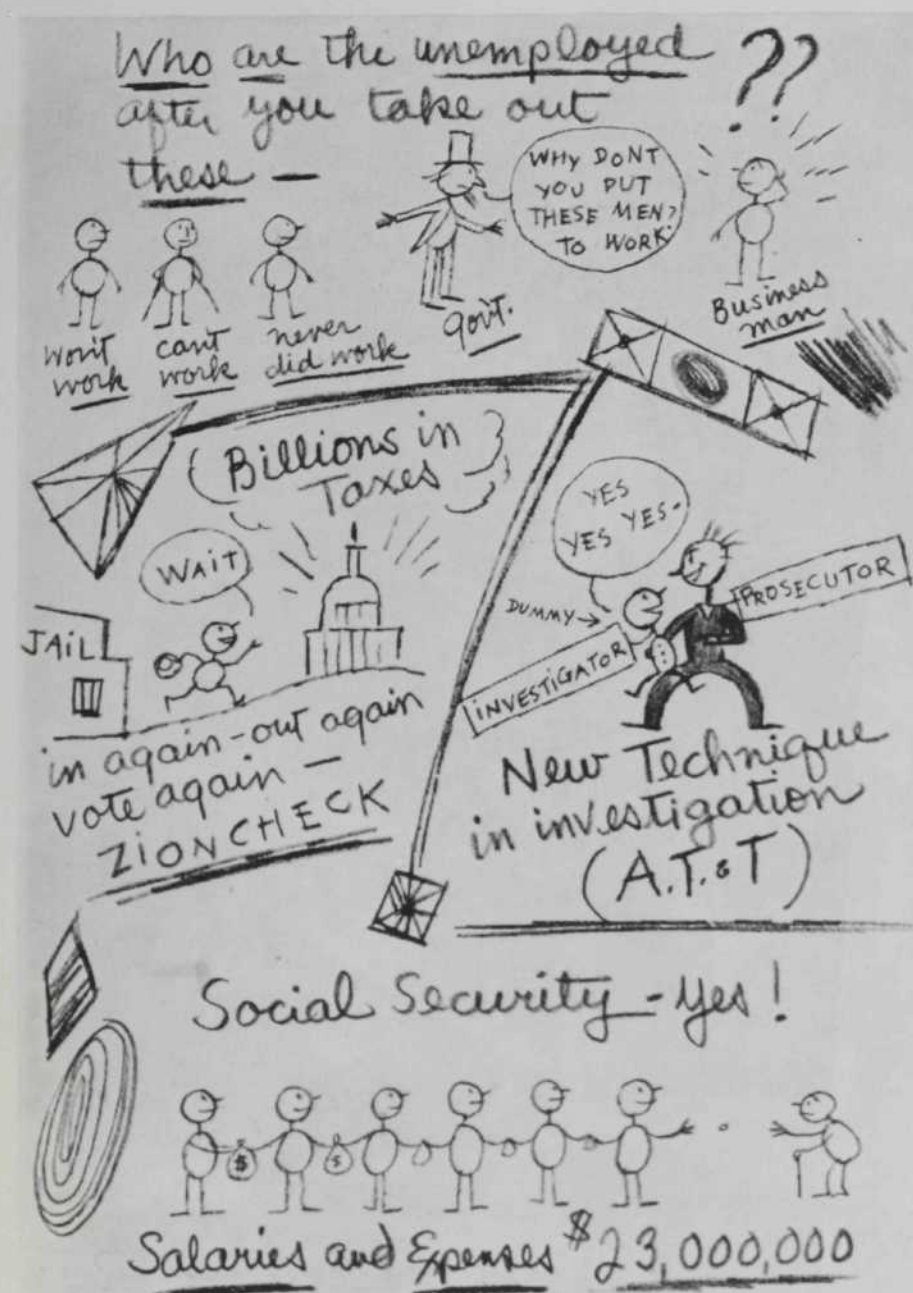 Who are the unemployed ??
after you take out
these —
WHY DONT
YOU PUT
THESE MEN?
TO WORK.
won't
work
can't
work
never
did work
Gov't.
Business
man
Billions in
Taxes
WAIT
JAIL
in again - out again
vote again —
ZIONCHECK
YES
YES YES -
DUMMY →
INVESTIGATOR
PROSECUTOR
New Technique
in investigation
(A.T. & T)
Social Security - Yes!
$ $
Salaries and Expenses $23,000,000